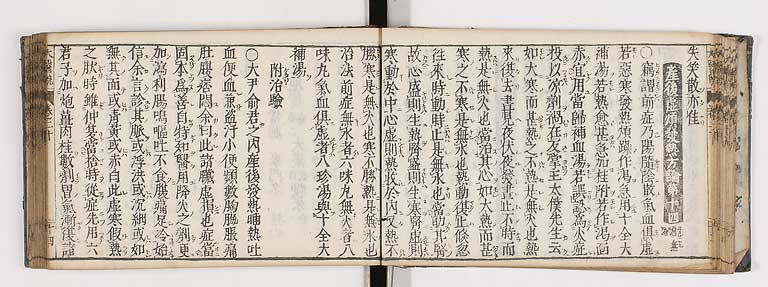 失笑散亦佳
産後虛煩發熱方論第十四
○竊謂前症乃陽隨陰散氣血俱虛
若惡寒發熱煩躁作渴急用十全大
補湯若熱愈甚急加桂附若作渴面
赤宜用當歸補血湯若誤認爲火症
投以凉劑禍在反掌王太僕先生云
如大寒而甚熱之不熱是無火也熱
來復去晝見夜伏夜發晝止不時而
熱是無火也當治其心如大熱而甚
寒之不寒是無水也熱動復止倐忽
往來時動時止是無水也當助其腎
故心盛則生熱腎盛則生寒腎虛則
寒動於中心虛則熱收於內又熱不
勝寒是無火也寒不勝熱是無水也
治法前症無水者六味丸無火者八
味丸氣血俱虛者八珍湯與十全大
補湯
附治驗
○大尹俞君之內産後發熱晡熱吐
血便血兼盗汗小便頻數胸脇脹痛
肚腹痞悶余曰此諸臟虛損也當
固本爲善自恃知醫用降火之劑更
加瀉利腸鳴嘔吐不食腹痛足冷始
信余言診其脉或浮洪或沉細或如
無其面或青黃或赤白此虛寒假熱
之狀時雖仲夏當捨時從症先用六
君子加炮薑肉桂數劑胃氣漸復諸